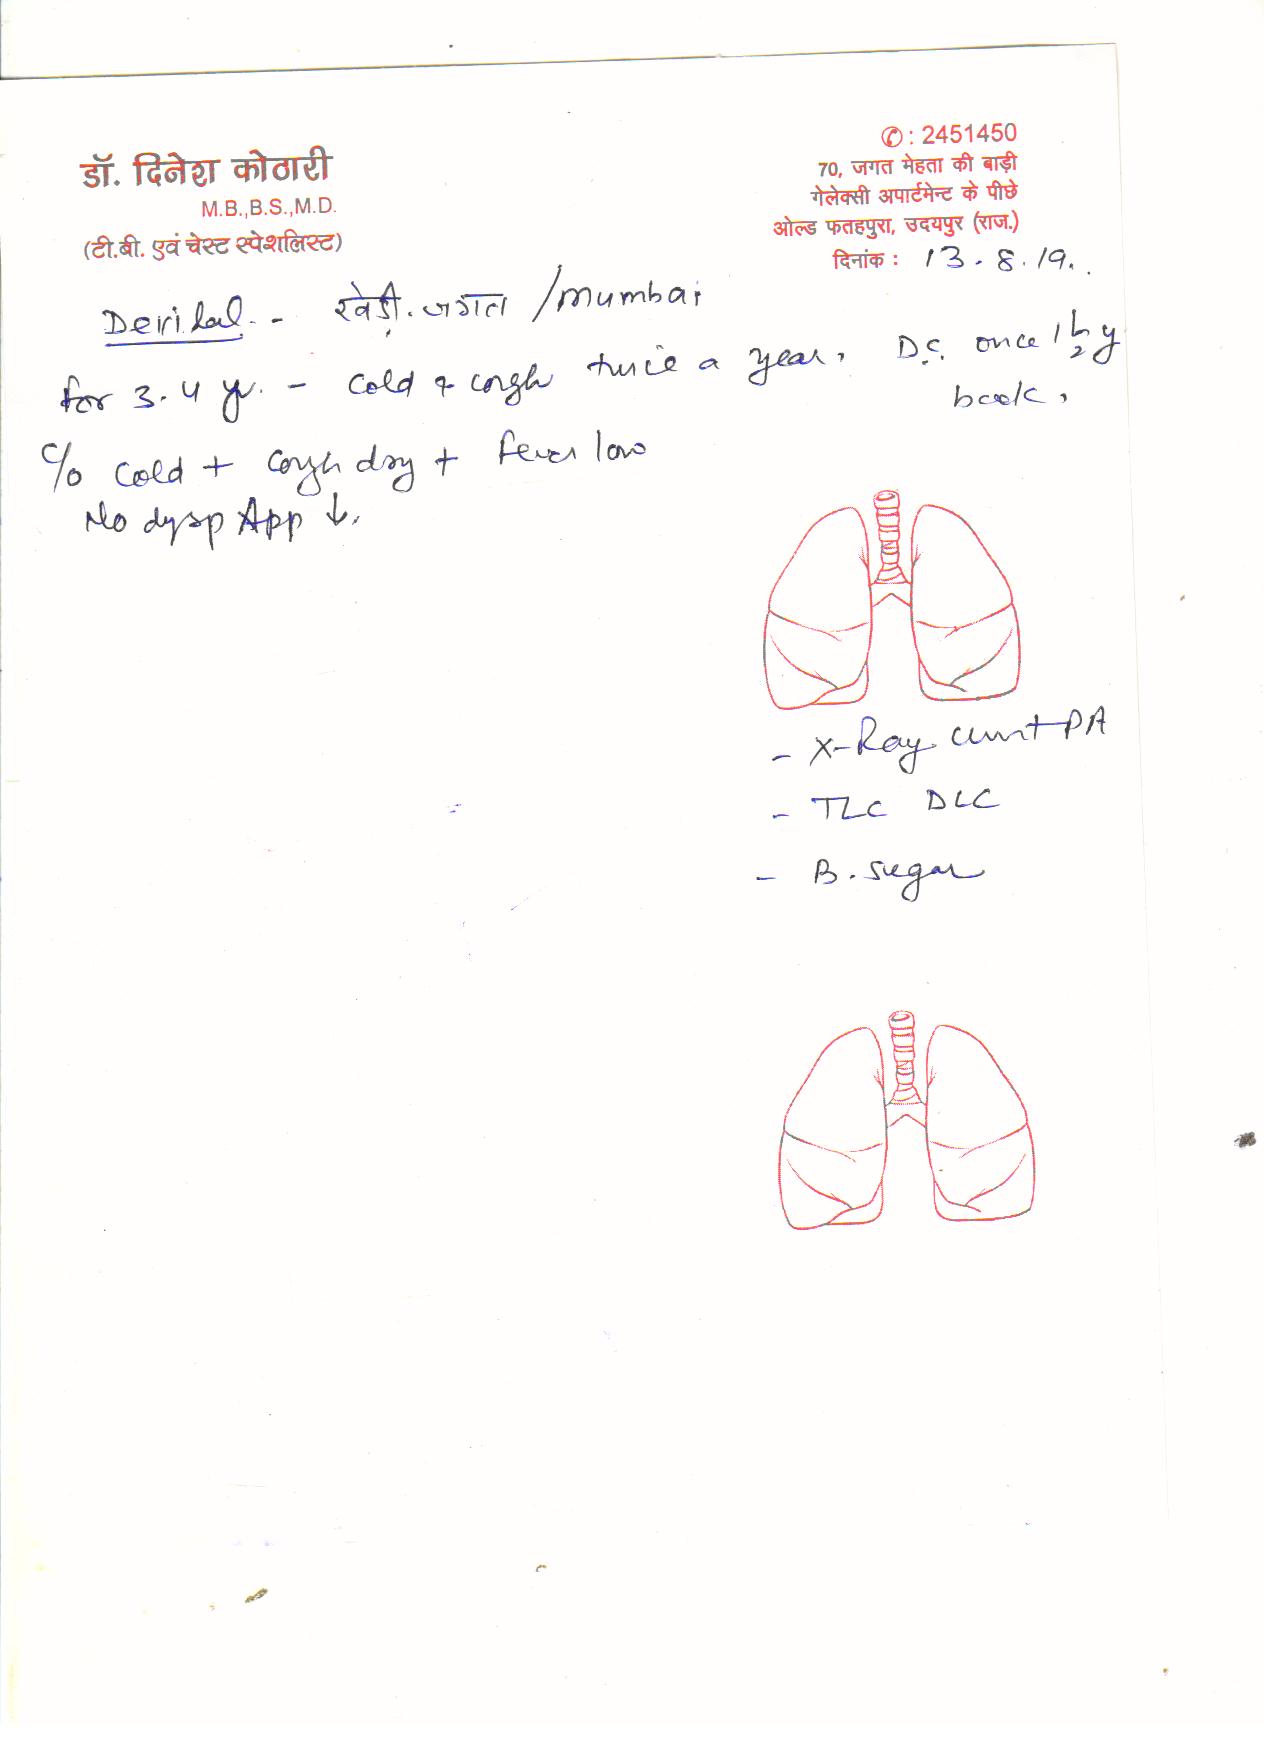 डॉ. दिनेश कोठारी
M.B.,B.S.,M.D.
(टी.बी. एवं चेस्ट स्पेशलिस्ट)
✆ : 2451450
70, जगत मेहता की बाड़ी
गेलेक्सी अपार्टमेन्ट के पीछे
ओल्ड फतहपुरा, उदयपुर (राज.)
दिनांक : 13.8.19.
Devilal. - खेड़ी. जगत /Mumbai
for 3.4 yr. - Cold & cough twice a year. D.S. once 1 1/2 y
back.
C/o Cold + Cough dry + fever low
No dysp App ↓.
- X-Ray. Chest PA
- TLC DLC
- B. Sugar